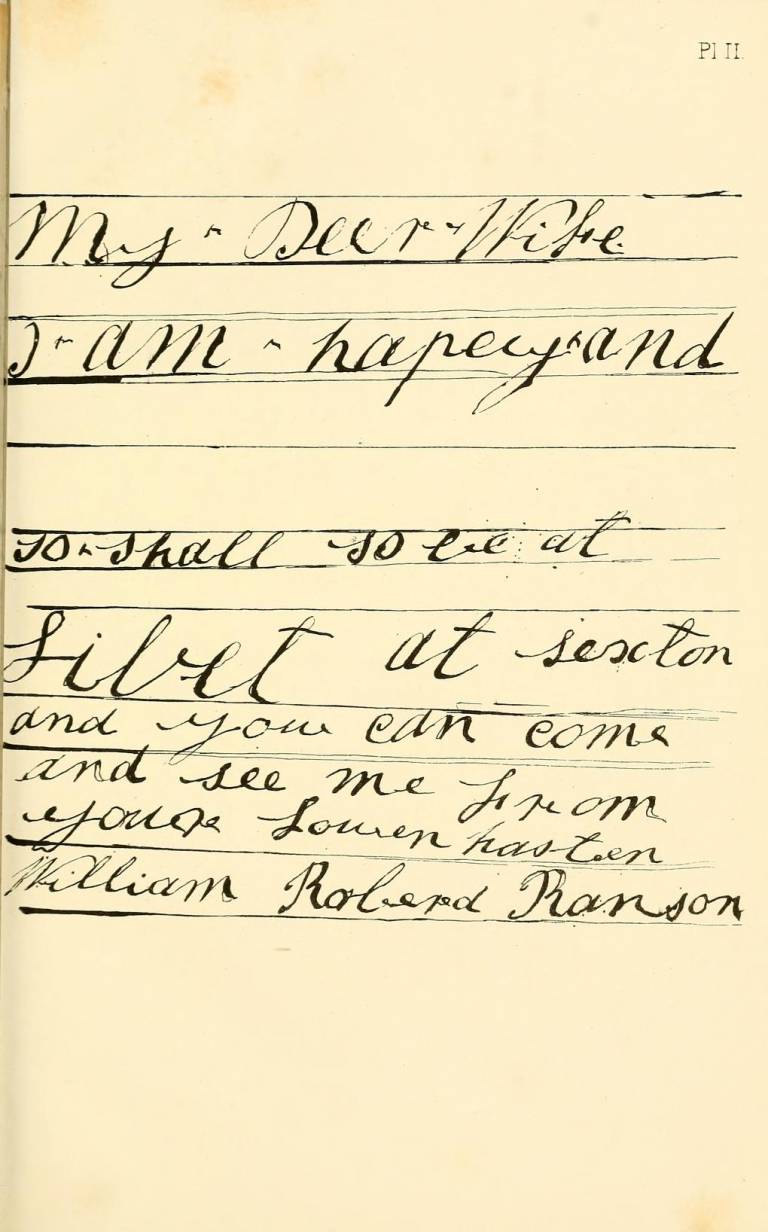 Pl II.
My " Deer " Wife
I " am " hapey " and
so " shall so be at
Libet at sexton
and you can come
and see me from
youor Louven hasten
William Roberd Ranson